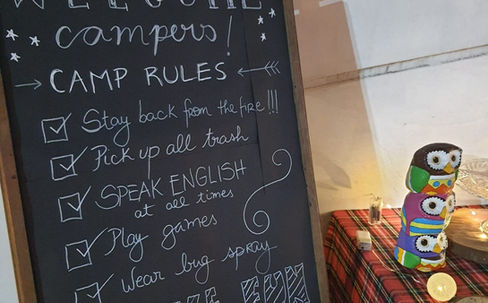 WELCOME
campers!
CAMP RULES
Stay back from the fire!!!
Pick up all trash
SPEAK ENGLISH
at all times
Play games
Wear bug spray
FUN